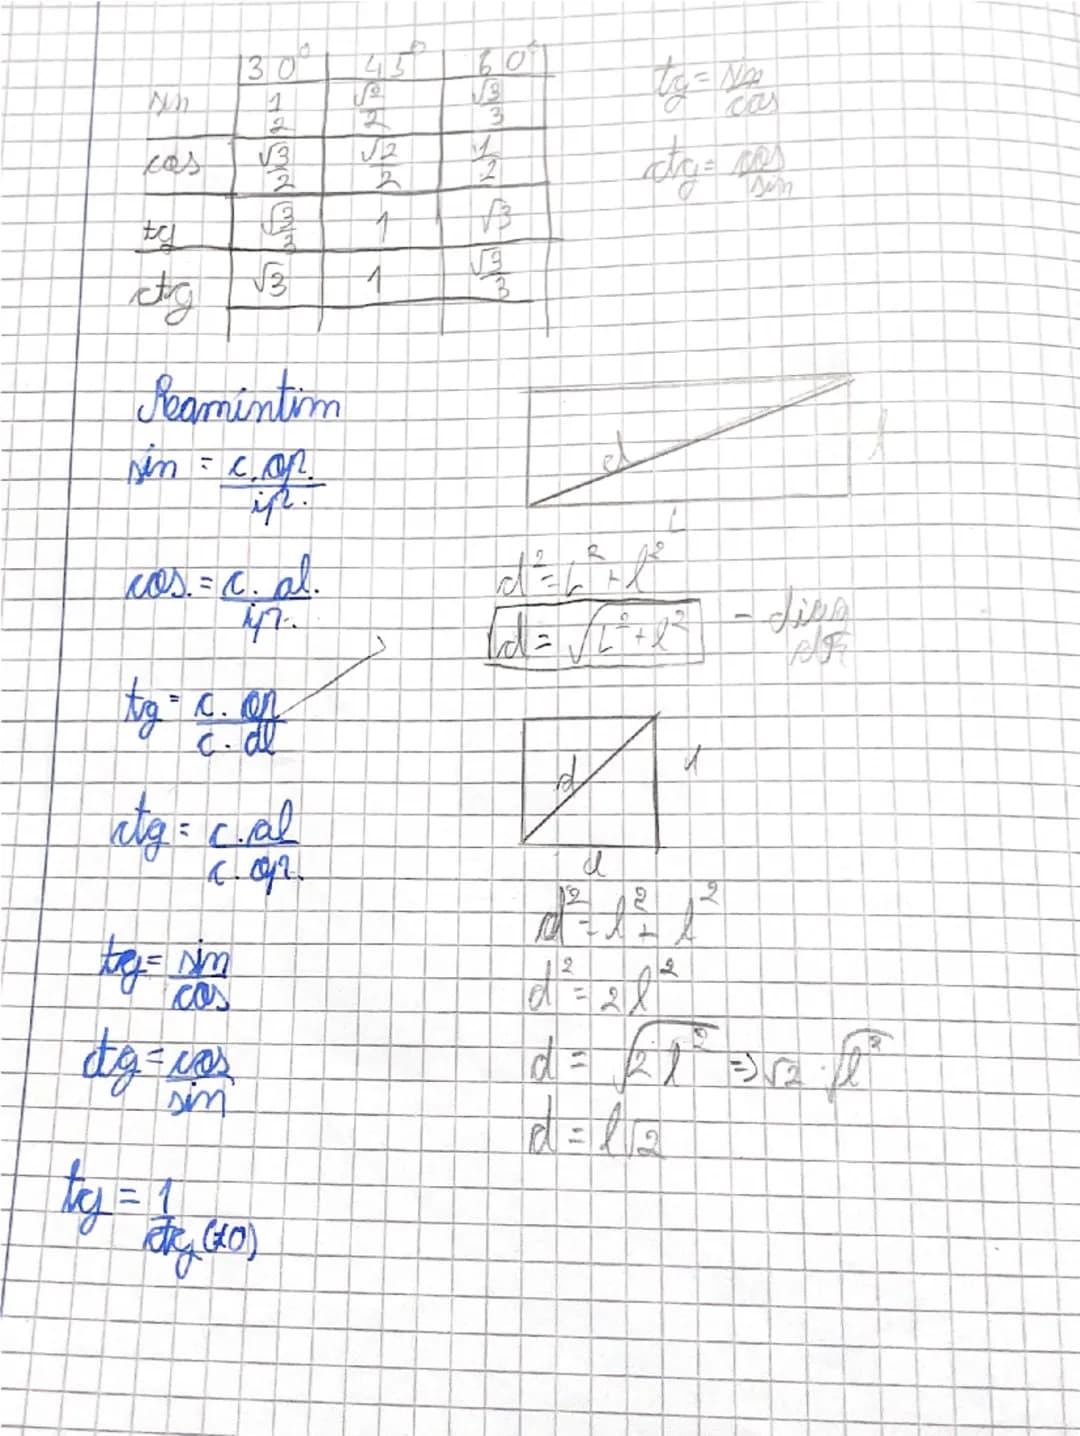 30° 45° 60°
sin 1/2 √2/2 √3/3
cos √3/2 √2/2 1/2
tg √3/3 1 √3
ctg √3 1 √3/3
tg = sin/cos
ctg = cos/sin
Reamintim
sin = c.op./ip.
cos. = c. al./ip.
tg = c. op/c. al
ctg = c.al/c.op.
tg = sin/cos
ctg = cos/sin
tg = 1/ctg (≠0)
d
l
L
d² = L² + l²
d = √L² + l²
d
l
d² = l² + l²
d² = 2l²
d = √2 l² => √2 · √l²
d = l√2